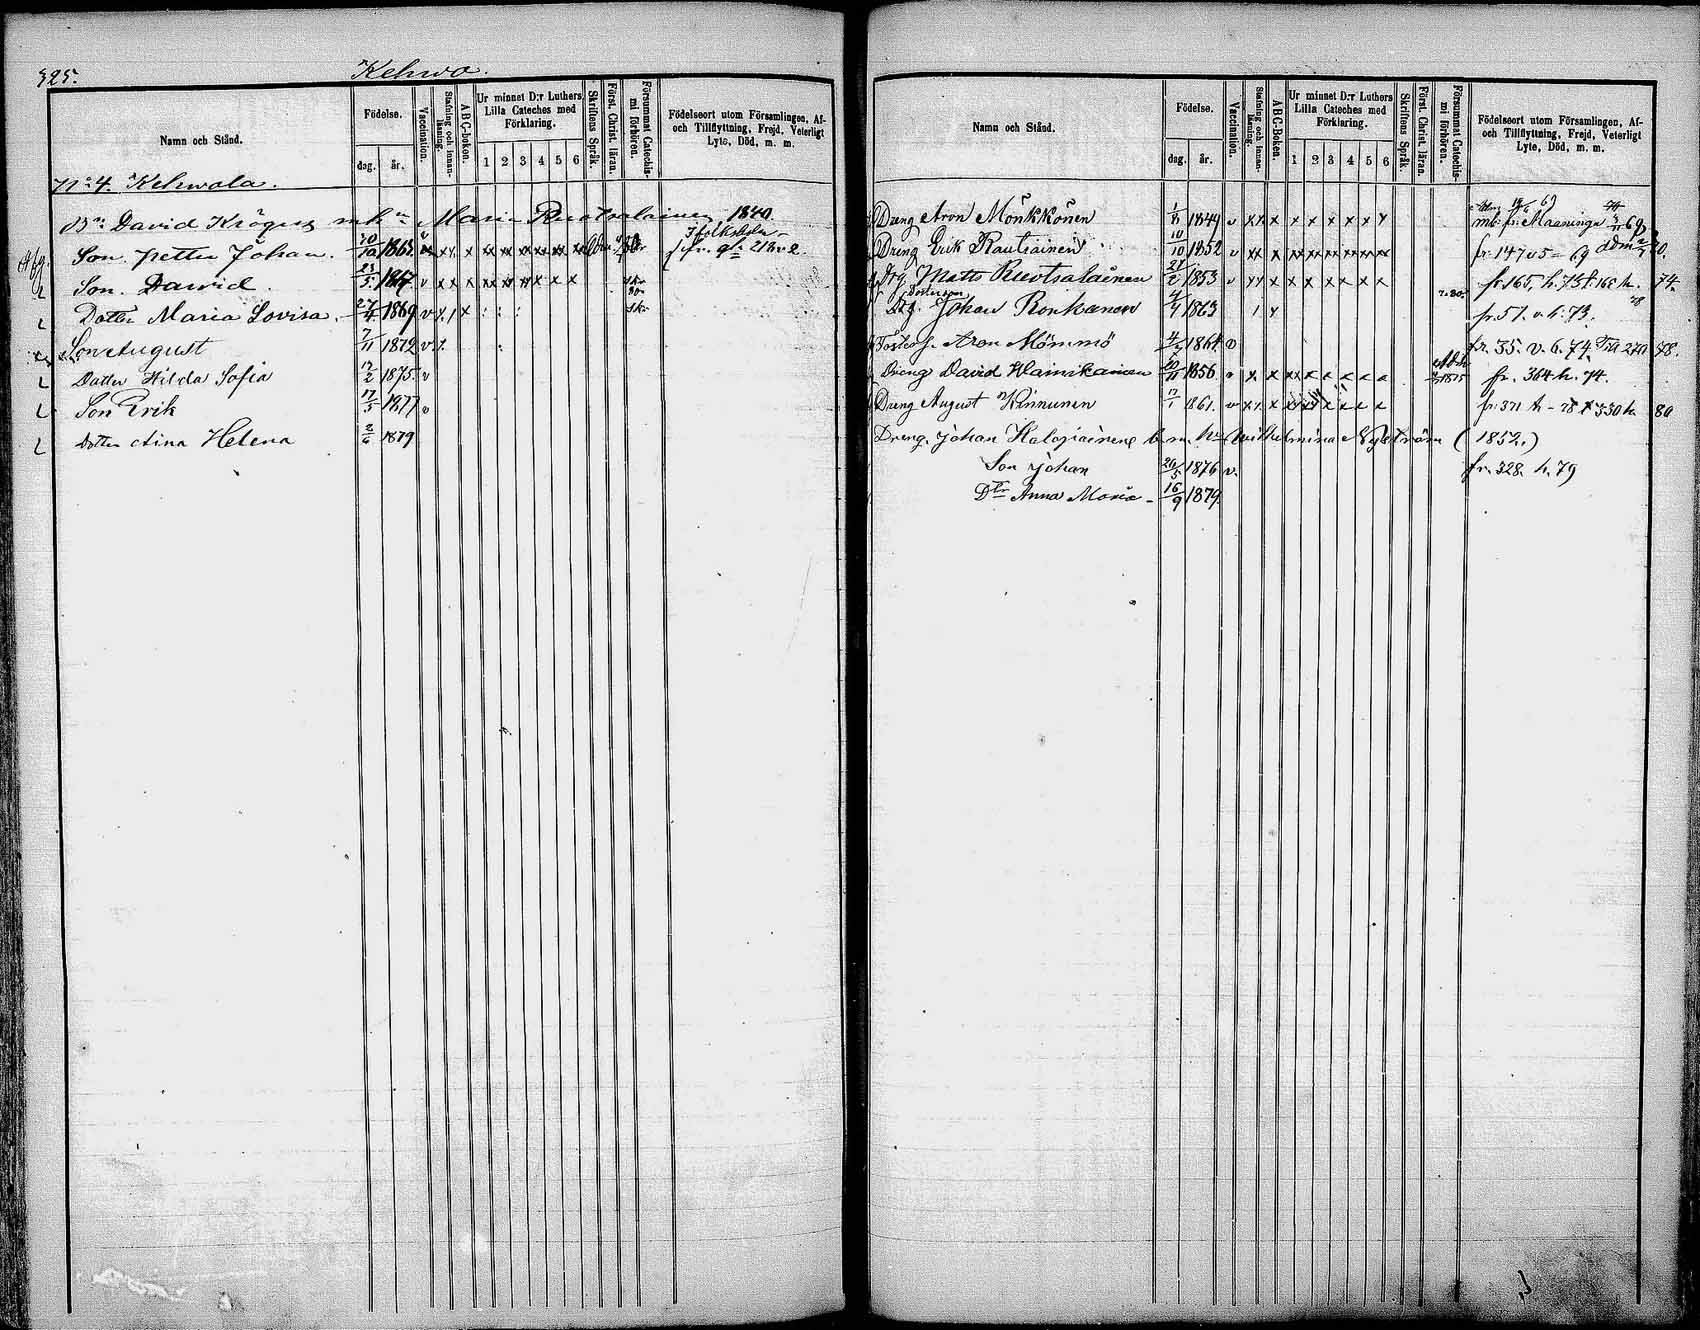 325.
Kehwo.
Namn och Stånd.
Födelse.
dag.
år.
Vaccination.
Stafning och innan-läsning.
A B C-boken.
Ur minnet D:r Luthers
Lilla Cateches med
Förklaring.
1 2 3 4 5 6
Skriftens Språk.
Först. Christ. läran.
Försummat Catechis-
mi förhören.
Födelseort utom Församlingen, Af-
och Tillflyttning, Frejd, Veterligt
Lyte, Död, m. m.
No 4. Kehwola.
Bn David Krögus m h Maria Ruotsalainen 1840.
Son Petter Johan. 30/10 1865. x x x fr. 218 v. 2.
Son. Dawid. 23/5 1867 v x x x x x x x x x
Dotter Maria Lovisa. 27/4 1869 v x 1 x
Son August 7/11 1872 v.
Dotter Hilda Sofia 17/2 1875. v
Son Erik 17/5 1877 v
Dotter Aina Helena 2/6 1879
Namn och Stånd.
Födelse.
dag.
år.
Vaccination.
Stafning och innan-läsning.
A B C-Boken.
Ur minnet D:r Luthers
Lilla Cateches med
Förklaring.
1 2 3 4 5 6
Skriftens Språk.
Först. Christ. läran.
Försummat Catechis-
mi förhören.
Födelseort utom Församlingen, Af-
och Tillflyttning, Frejd, Veterligt
Lyte, Död, m. m.
Dreng Aron Mönkkönen 1849 v x x x x x x x x fr. Maaninga 69
Dreng Erik Rautiainen 10/10 1852 v x x x fr 147 v 5 - 69
Drg Matts Ruotsalainen 21/2 1853 v x x x x x x x x x fr 165. h. 73 t. 168 h. 74.
Fosterson
Johan Ronkanen 1863 1 x fr. 51. v. h. 73.
Foster s. Aron Mömmö 1864 v fr. 35. v. 6. 74. 270 78.
Dreng David Hainikainen 1856 v x x x x x x x fr. 364 h. 74.
Dreng August Kinnunen 17/1 1861. v x x x x x x fr. 371 h - 78 t 330 h 80
Dreng. Johan m. h. Wilhelmina Nyström (1852.)
Son Johan 26/5 1876 v. fr. 328. h. 79
Dtr Anna Maria - 16/9 1879